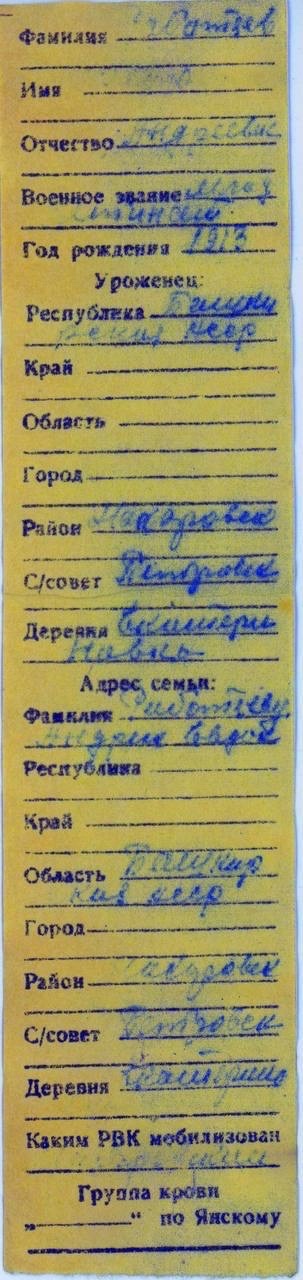 Фамилия
Имя
Отчество Андреевич
Военное звание Млад
Год рождения 1913
Уроженец:
Республика Башки
рская АССР
Край
Область
Город
Район Макаровск
С/совет Петровск
Деревня Екатери
новка
Адрес семьи:
Фамилия
Андрей
Республика
Край
Область Башкир
кая АССР
Город
Район Макаровск
С/совет Петровск
Деревня Екатерино
Каким РВК мобилизован
Группа крови
„ “ по Янскому